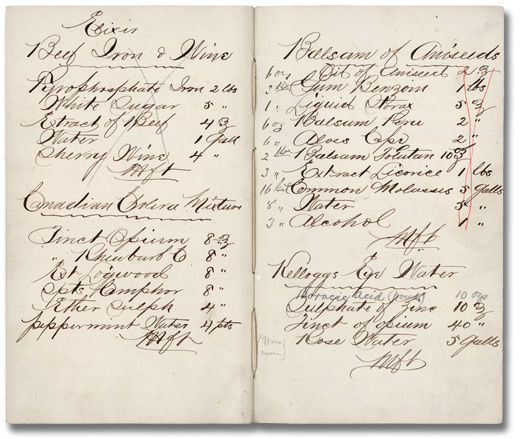 Elixir
Beef Iron & Wine
Pyrophosphate Iron 2 lbs
White Sugar 5 "
Extract of Beef 4 ℥
Water 1 Gall
Sherry Wine 4 "
Mft
Canadian Colera Mixture
Tinct Opium 8 ℥
" Rhubarb E 8 "
Ext Logwood 8 "
Spts Camphor 8 "
Ether Sulph 4 "
Peppermint Water 4 pts
Mft
Balsam of Aniseeds
6 oz Oil of Aniseed 2 ℥
Gum Benzoin 1 lbs
1 " Liquid Storax 5 ℥
6 oz Balsam Peru 2 "
6 " Aloes Cape 2 "
2 lbs Balsam Tolutan 10 ℥
3 " Extract Licorice 1 lbs
16 Common Molasses 5 Galls
8 " Water 5 "
3 " Alcohol 1 "
Mft
Kelloggs Eye Water
Boracic Acid (powd) 10 ozs
Sulphate of Zinc 10 ℥
Tinct of Opium 40 "
Rose Water 5 Galls
Mft